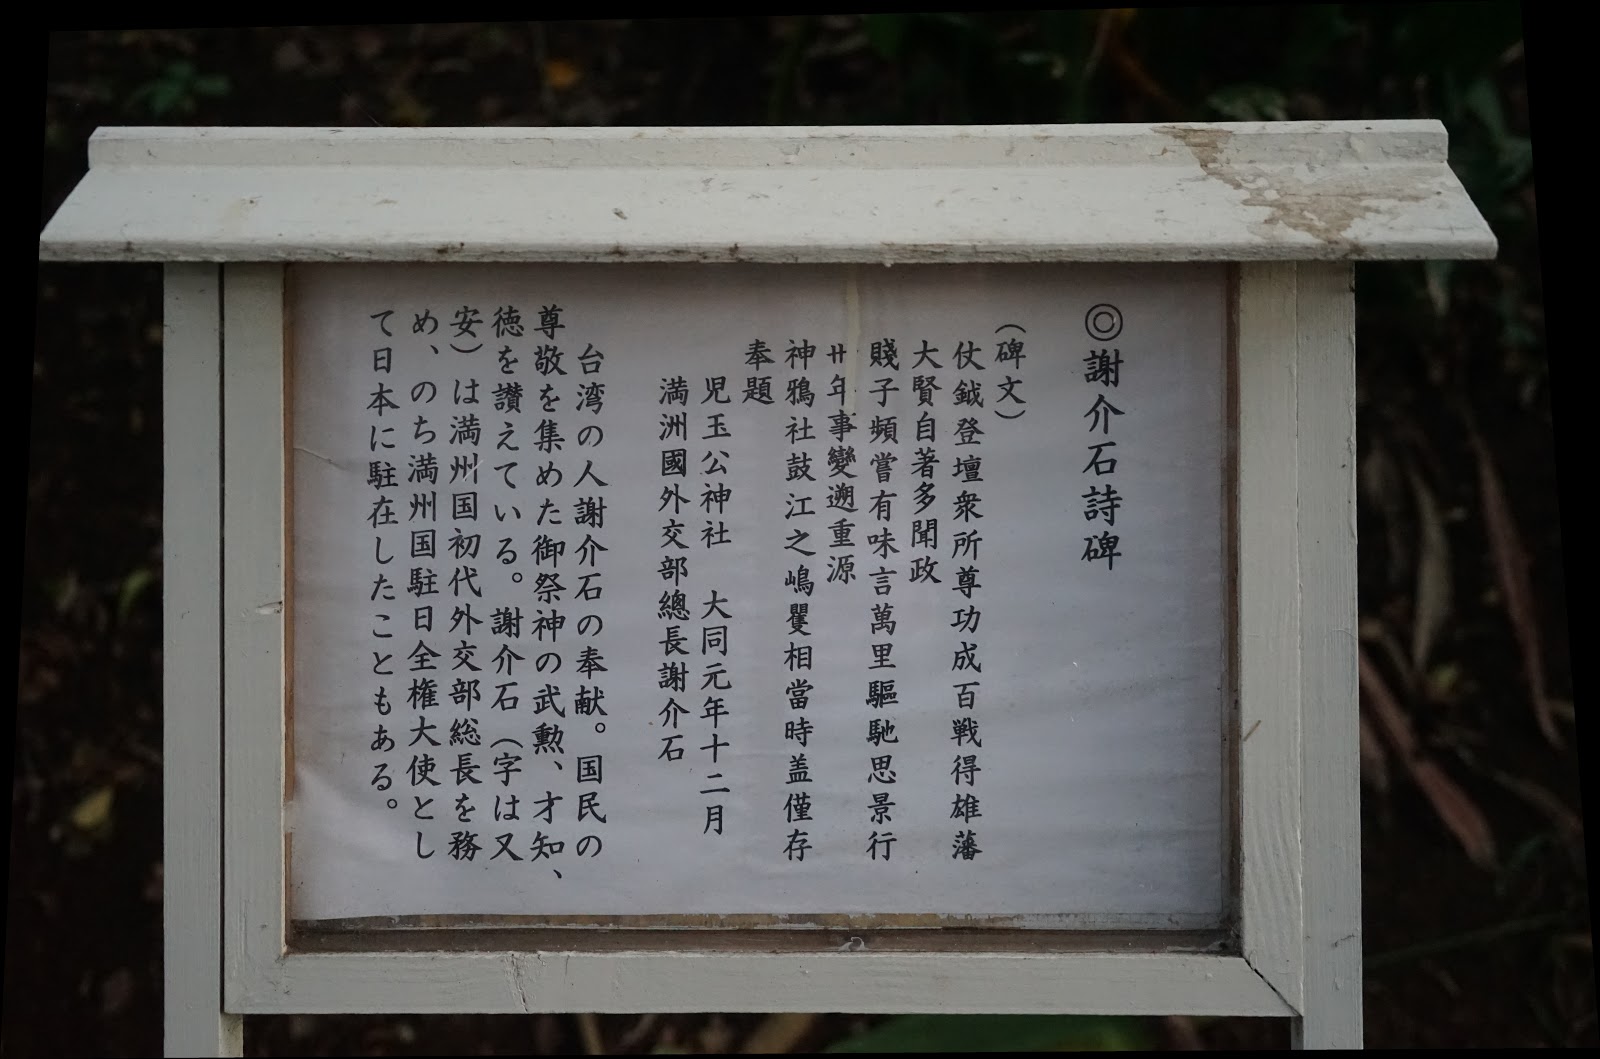 ◎謝介石詩碑
（碑文）
仗鉞登壇衆所尊功成百戦得雄藩
大賢自著多聞政
賤子頻嘗有味言萬里驅馳思景行
卄年事變遡重源
神鴉社鼓江之嶋矍相當時盖僅存
奉題
児玉公神社　大同元年十二月
満洲國外交部總長謝介石
台湾の人謝介石の奉献。国民の
尊敬を集めた御祭神の武勲、才知、
徳を讃えている。謝介石（字は又
安）は満州国初代外交部総長を務
め、のち満州国駐日全権大使とし
て日本に駐在したこともある。